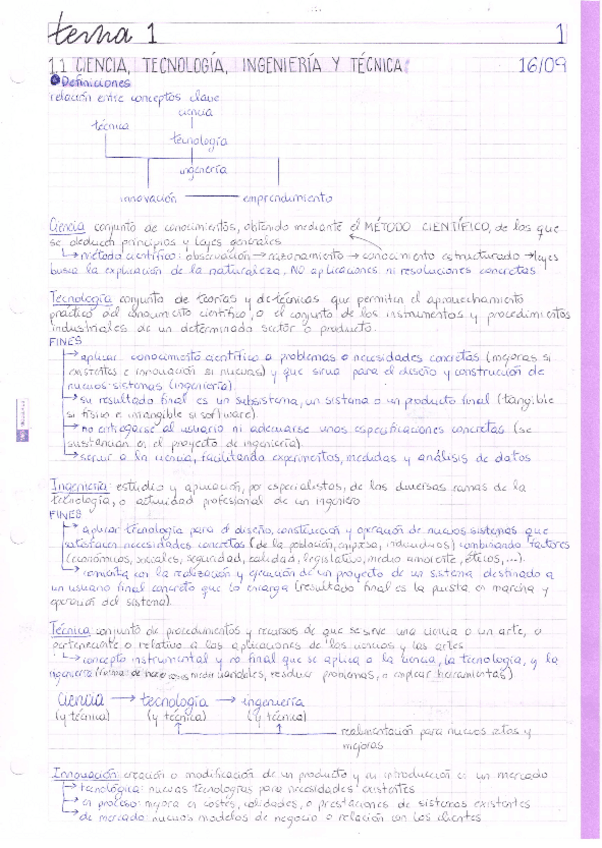 tema 1 1
1.1 CIENCIA, TECNOLOGÍA, INGENIERÍA Y TÉCNICA 16/09
Definiciones
relación entre conceptos clave
ciencia
técnica
tecnología
ingeniería
innovación emprendimiento
Ciencia: conjunto de conocimientos, obtenido mediante el MÉTODO CIENTÍFICO, de los que
se deducen principios y leyes generales
método científico: observación → razonamiento → conocimiento estructurado → leyes
busca la explicación de la naturaleza, NO aplicaciones ni resoluciones concretas
Tecnología: conjunto de teorías y de técnicas que permiten el aprovechamiento
práctico del conocimiento científico, o el conjunto de los instrumentos y procedimientos
industriales de un determinado sector o producto.
FINES
→ aplicar conocimiento científico a problemas o necesidades concretas (mejoras si
existentes e innovación si nuevas) y que sirva para el diseño y construcción de
nuevos sistemas (ingeniería).
→ su resultado final es un subsistema, un sistema o un producto final (tangible
si físico e intangible si software).
→ no entregarse al usuario ni adecuarse unas especificaciones concretas (se
en el proyecto de ingeniería).
→ servir a la ciencia, facilitando experimentos, medidas y análisis de datos
Ingeniería: estudio y aplicación, por especialistas, de las diversas ramas de la
tecnología, o actividad profesional de un ingeniero
FINES
→ aplicar tecnología para el diseño, construcción y operación de nuevos sistemas que
satisfacen necesidades concretas (de la población, empresa, individuos) combinando factores
(económicos, sociales, seguridad, calidad, legislativo, medio ambiente, éticos,...).
→ con la realización y ejecución de un proyecto de un sistema destinado a
un usuario final concreto que lo encarga (resultado final es la puesta en marcha y
operación del sistema).
Técnica: conjunto de procedimientos y recursos de que se sirve una ciencia o un arte, o
perteneciente o relativo a las aplicaciones de las ciencias y las artes
→ concepto instrumental y no final que se aplica a la ciencia, la tecnología, y la
ingeniería (formas de hacer variables, resolver problemas, o emplear herramientas)
Ciencia → tecnología → ingeniería
(y técnica) (y técnica) (y técnica)
realimentación para nuevos retos y
mejoras
Innovación: creación o modificación de un producto y su introducción en un mercado
→ tecnológica: nuevas tecnologías para necesidades existentes
→ en proceso: mejora en costes, calidades, o prestaciones de sistemas existentes
→ de mercado: nuevos modelos de negocio o relación con los clientes